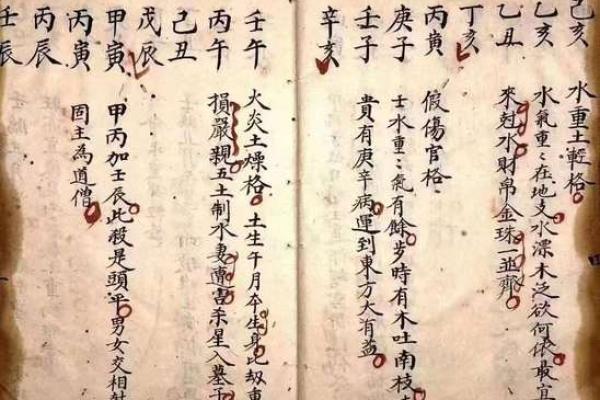 己亥
乙亥
乙丑
丁亥
水重土輕格
水氣重重在地支水漂木泛欲何依最宜
來尅水財帛金珠一並齊
丙寅
庚子
壬子
辛亥
假傷官格
壬水重重氣有餘步時有木吐南枝
貴有庚辛病運到東方大有益
壬午
丙午
己丑
戊辰
火炎土燥格土生午月卒生身比刼重
損嚴親五土制水妻遭害杀星入墓子
甲寅
丙寅
丙辰
壬辰
甲丙加壬辰此殺是頭平男女交相
固主為道僧